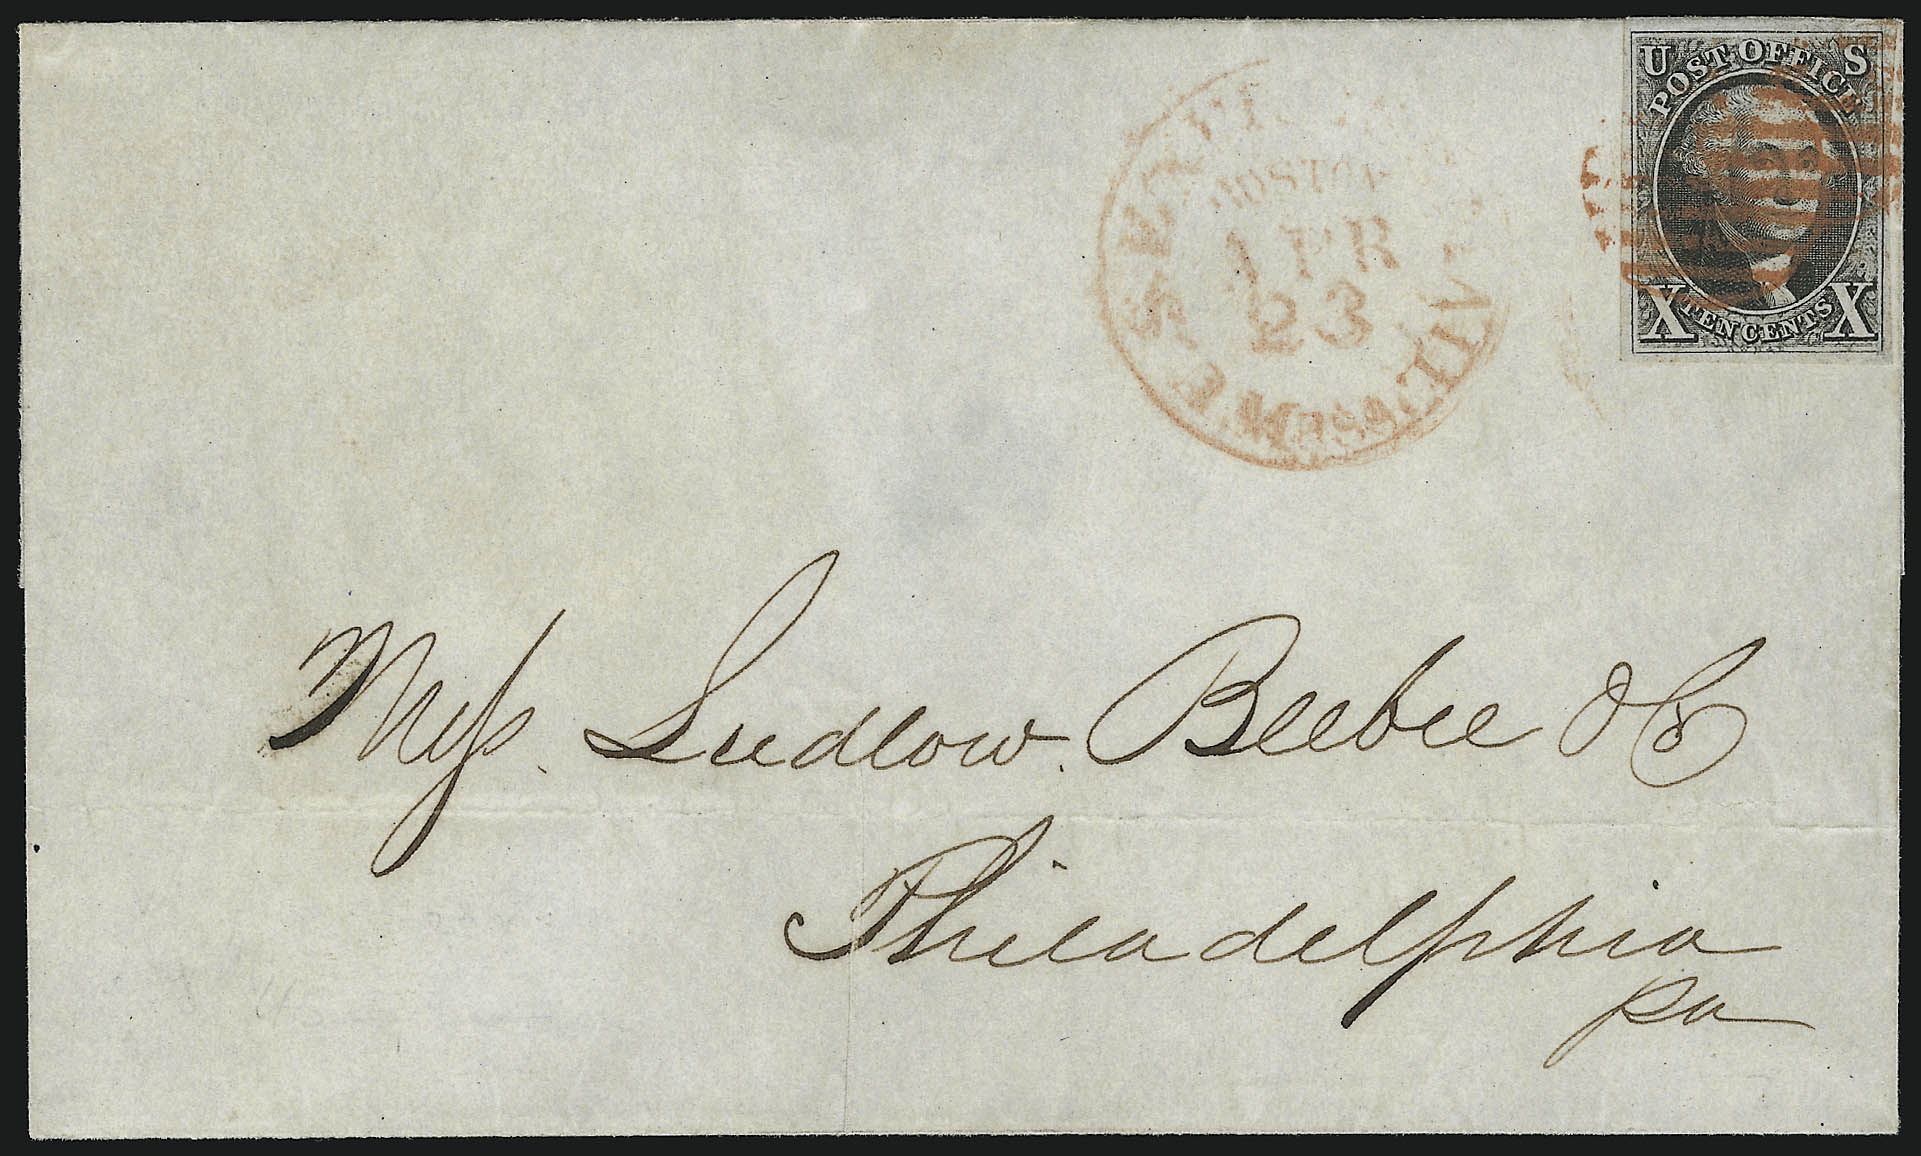 U S
POST OFFICE
X TEN CENTS X
BOSTON
APR
23
Mess. Ludlow. Beebee & Co
Philadelphia
Pa